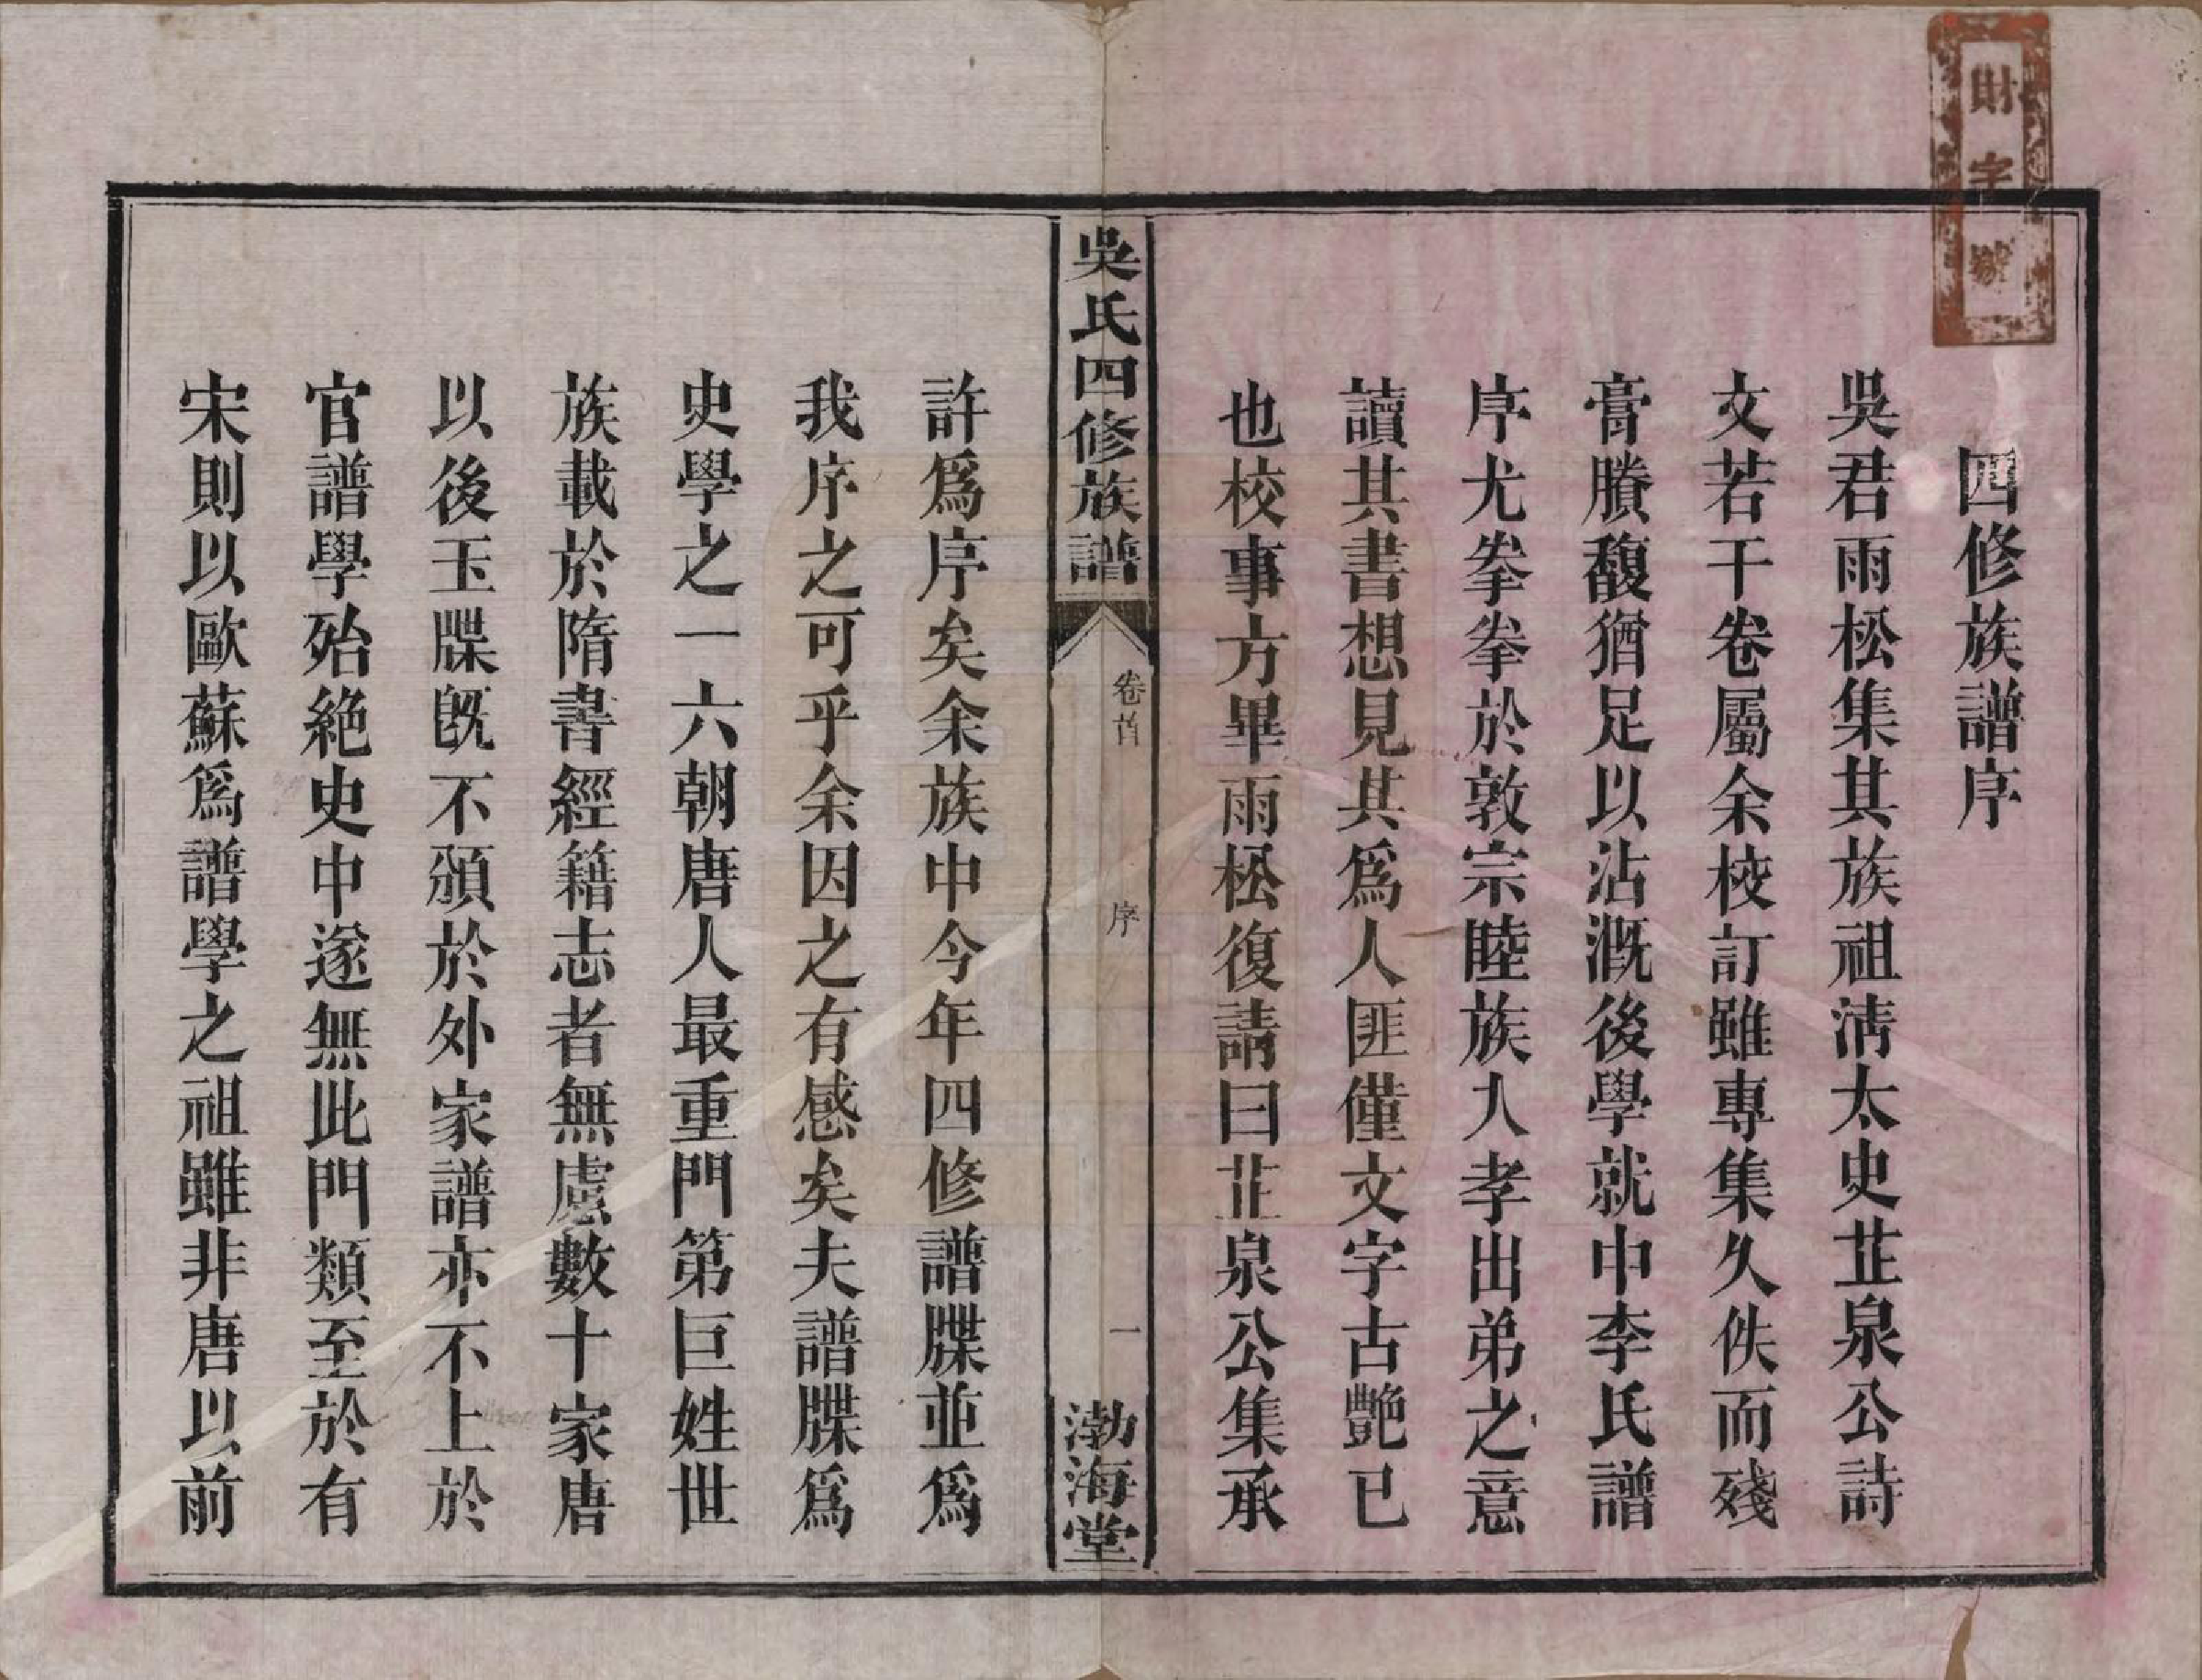 財字號
四修族譜序
吳君雨松集其族祖淸太史芷泉公詩
文若干卷屬余校訂雖專集久佚而殘
膏賸馥猶足以沾溉後學就中李氏譜
序尤拳拳於敦宗睦族入孝出弟之意
讀其書想見其爲人匪僅文字古艷已
也校事方畢雨松復請曰芷泉公集承
吳氏四修族譜
卷首
序
一
渤海堂
許爲序矣余族中今年四修譜牒並爲
我序之可乎余因之有感矣夫譜牒爲
史學之一六朝唐人最重門第巨姓世
族載於隋書經籍志者無慮數十家唐
以後玉牒旣不頒於外家譜亦不上於
官譜學殆絕史中遂無此門類至於有
宋則以歐蘇爲譜學之祖雖非唐以前